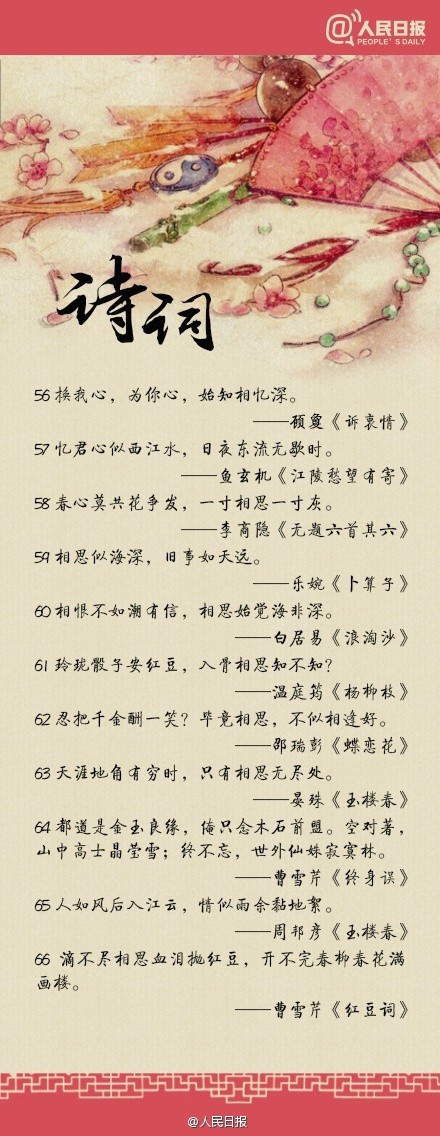 @人民日报
PEOPLE'S DAILY
诗词
56 换我心，为你心，始知相忆深。
——顾夐《诉衷情》
57 忆君心似西江水，日夜东流无歇时。
——鱼玄机《江陵愁望有寄》
58 春心莫共花争发，一寸相思一寸灰。
——李商隐《无题六首其六》
59 相思似海深，旧事如天远。
——乐婉《卜算子》
60 相恨不如潮有信，相思始觉海非深。
——白居易《浪淘沙》
61 玲珑骰子安红豆，入骨相思知不知？
——温庭筠《杨柳枝》
62 忍把千金酬一笑？毕竟相思，不似相逢好。
——邵瑞彭《蝶恋花》
63 天涯地角有穷时，只有相思无尽处。
——晏殊《玉楼春》
64 都道是金玉良缘，俺只念木石前盟。空对著，
山中高士晶莹雪；终不忘，世外仙姝寂寞林。
——曹雪芹《终身误》
65 人如风后入江云，情似雨余黏地絮。
——周邦彦《玉楼春》
66 滴不尽相思血泪抛红豆，开不完春柳春花满
画楼。
——曹雪芹《红豆词》
@人民日报